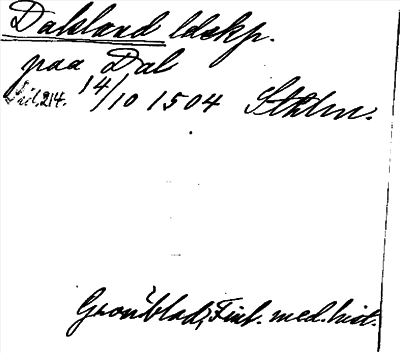 Dalsland ldskp.
paa Dal
14/10 1504 Sthlm.
s. 214.
Grönblad, Finl. med. hist.